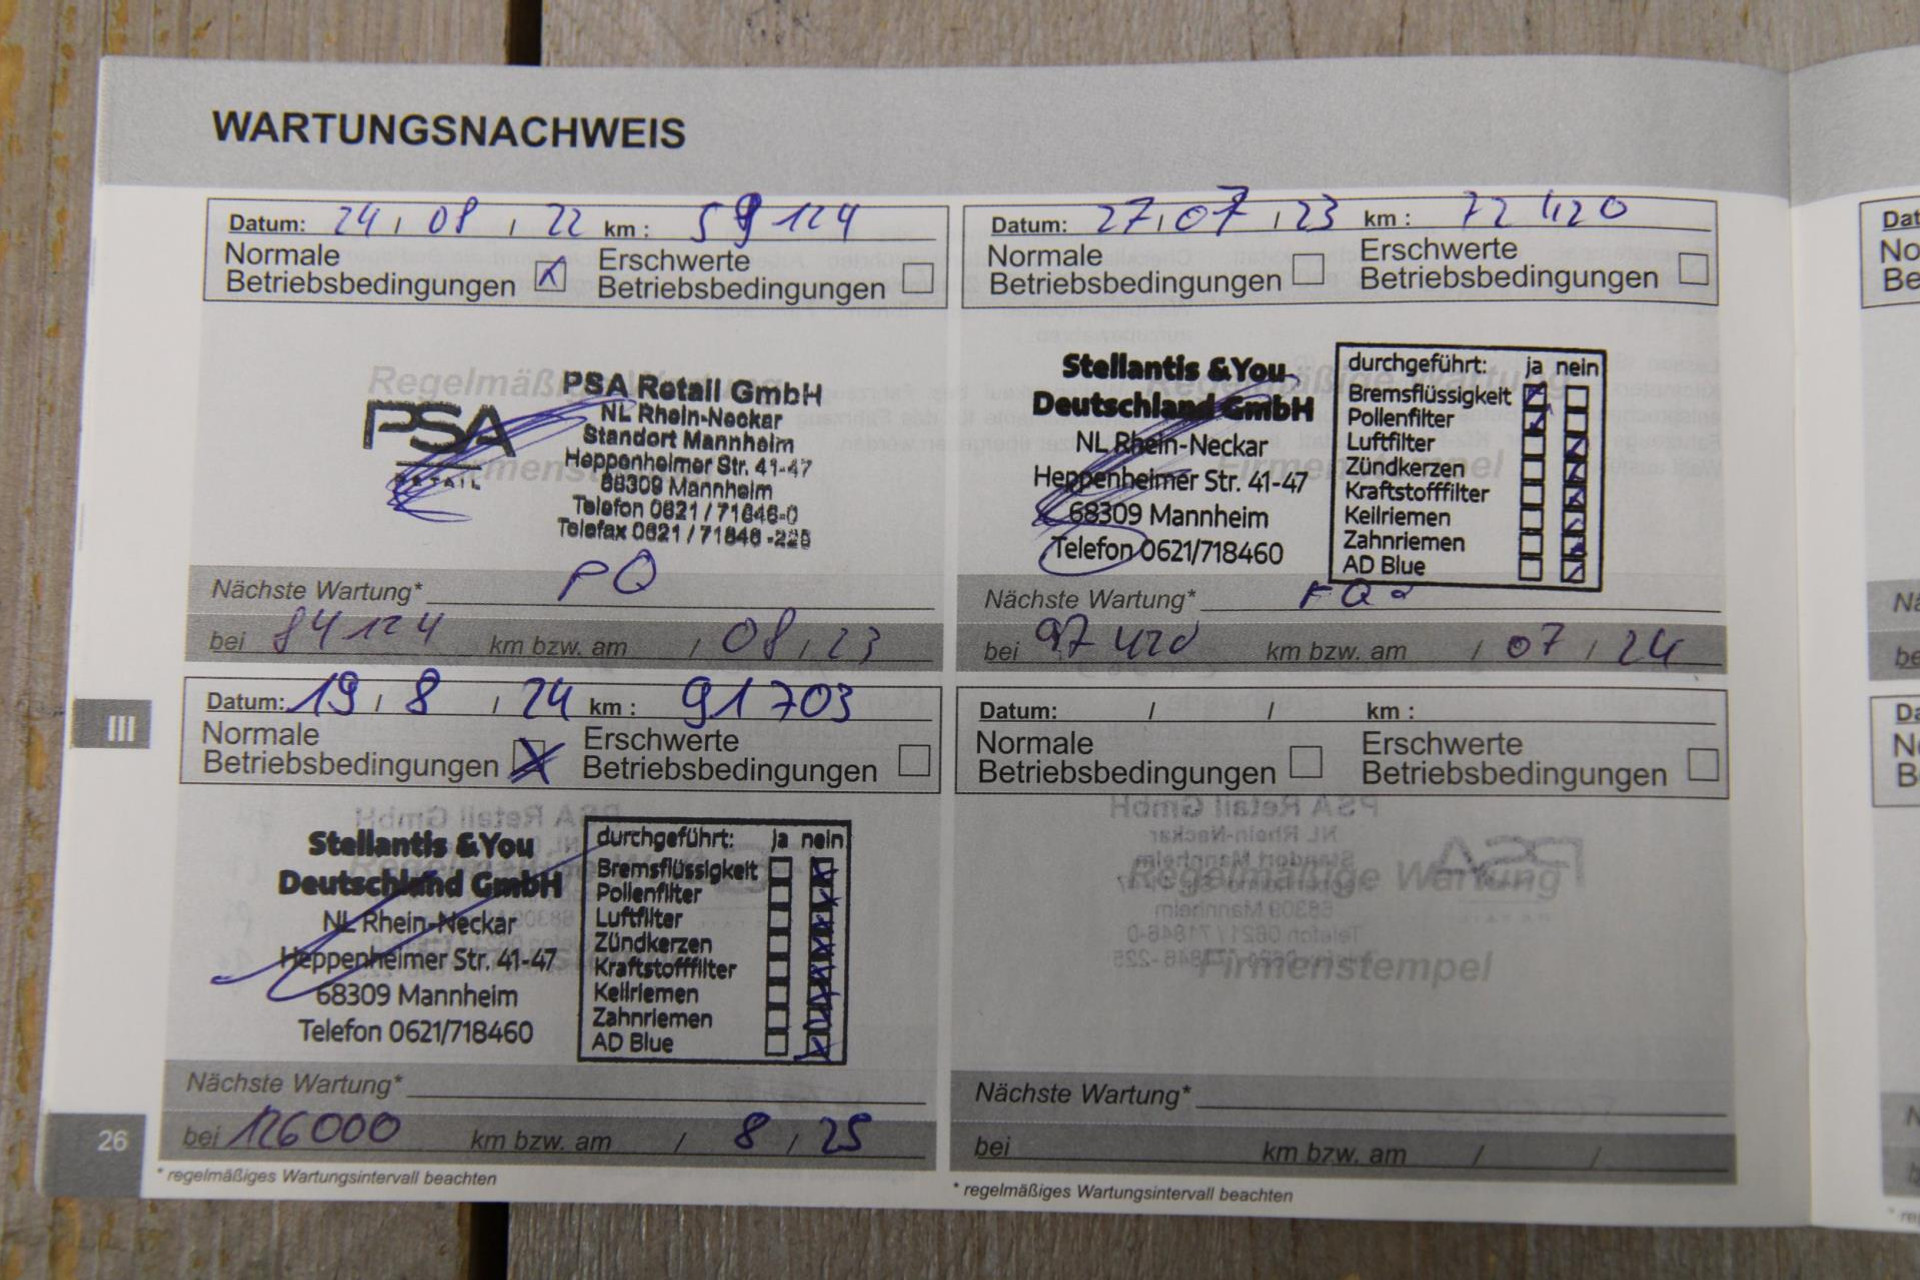 WARTUNGSNACHWEIS
Datum: 24 / 08 / 22 km : 59 124
Normale Betriebsbedingungen
Erschwerte Betriebsbedingungen
Regelmäßige Wartung
Firmenstempel
PSA
RETAIL
PSA Retail GmbH
NL Rhein-Neckar
Standort Mannheim
Heppenheimer Str. 41-47
68309 Mannheim
Telefon 0621 / 71846-0
Telefax 0621 / 71846 -225
Nächste Wartung*
bei 84 124 km bzw. am / 08 / 23
Datum: 27 / 07 / 23 km : 72 420
Normale Betriebsbedingungen
Erschwerte Betriebsbedingungen
Regelmäßige Wartung
Firmenstempel
Stellantis &You
Deutschland GmbH
NL Rhein-Neckar
Heppenheimer Str. 41-47
68309 Mannheim
Telefon 0621/718460
durchgeführt: ja nein
Bremsflüssigkeit
Pollenfilter
Luftfilter
Zündkerzen
Kraftstofffilter
Keilriemen
Zahnriemen
AD Blue
Nächste Wartung*
bei 97 420 km bzw. am / 07 / 24
III
Datum: 19 / 8 / 24 km : 91 703
Normale Betriebsbedingungen
Erschwerte Betriebsbedingungen
Stellantis &You
Deutschland GmbH
NL Rhein-Neckar
Heppenheimer Str. 41-47
68309 Mannheim
Telefon 0621/718460
durchgeführt: ja nein
Bremsflüssigkeit
Pollenfilter
Luftfilter
Zündkerzen
Kraftstofffilter
Keilriemen
Zahnriemen
AD Blue
Nächste Wartung*
bei 126000 km bzw. am / 8 / 25
* regelmäßiges Wartungsintervall beachten
Datum: / / km :
Normale Betriebsbedingungen
Erschwerte Betriebsbedingungen
Regelmäßige Wartung
Firmenstempel
Nächste Wartung*
bei km bzw. am / /
* regelmäßiges Wartungsintervall beachten
26